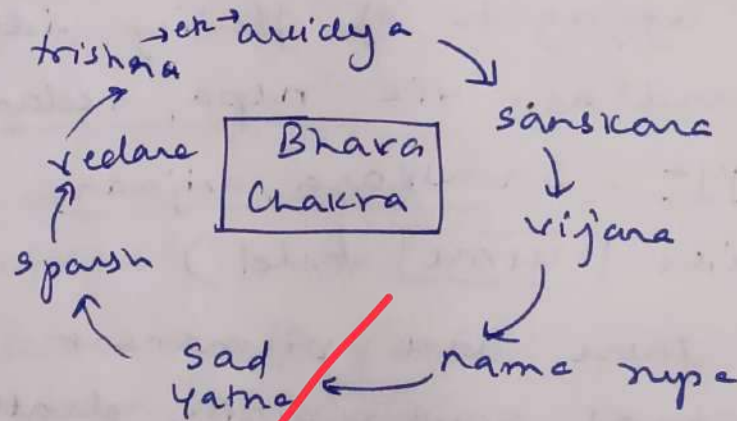 trishna → etc → avidya
sanskara
vijana
nama rupa
sad
yatna
sparsh
vedana
Bhava
Chakra